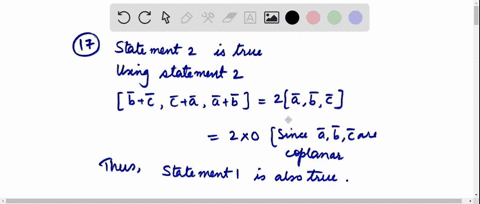 17 Statement 2 is true
Using statement 2
[b̄+c̄, c̄+ā, ā+b̄] = 2[ā, b̄, c̄]
= 2×0 [Since ā, b̄, c̄ are
coplanar
Thus, Statement 1 is also true.